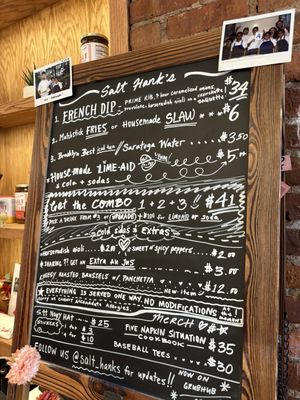 Salt Hank's
1. FRENCH DIP - PRIME RIB, 7 hour caramelized onions, $34
provolone, horseradish aioli on a baguette
2. Matchstick FRIES or Housemade SLAW $6
3. Brooklyn Best iced tea / Saratoga Water $3.50
House-made LIME-AID $5
& Cola + sodas
Get the COMBO 1+2+3!! $41
PICK A DRINK FROM #3 or UPGRADE for LIMEAID or soda
Cold sides & extras
Horseradish aioli $2.00 SWEET n' spicy peppers $2.00
SHARING?? GET AN EXTRA AU JUS $3.00
CRISPY ROASTED BRUSSELS w/ PANCHETTA $12
New item
EVERYTHING IS SERVED ONE WAY, NO MODIFICATIONS
MERCH
S.H NAVY HAT $25
FIVE NAPKIN SITUATION $35
COOKBOOK
1 for $3
$10
BASEBALL TEES $30
FOLLOW US @salt_hanks for updates!!
NOW ON
GRUBHUB